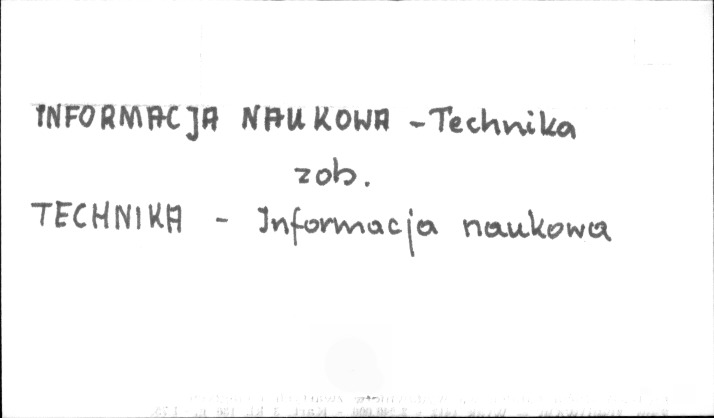 INFORMACJA NAUKOWA - Technika
zob.
TECHNIKA - Informacja naukowa